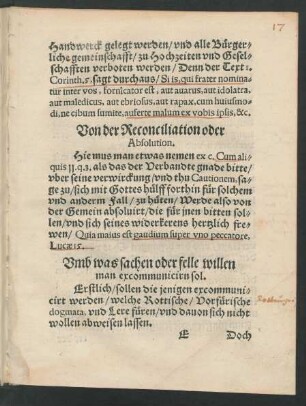 17
Handwerck gelegt werden/ vnd alle Bürger-
liche gemeinschafft/ zu Hochzeiten vnd Gesel-
schafften verboten werden/ Denn der Text 1.
Corinth. 5. sagt durchaus/ Si is, qui frater nomina-
tur inter vos, fornicator est, aut auarus, aut idolatra,
aut maledicus, aut ebriosus, aut rapax, cum huiusmo-
di, ne cibum sumite, auferte malum ex vobis ipsis, &c.
Von der Reconciliation oder
Absolution.
Hie mus man etwas nemen ex c. Cum ali-
quis 11. q. 3. als das der Verbandte gnade bitte/
vber seine verwirckung/ vnd thu Cautionem, sa-
ge zu/ sich mit Gottes hülff forthin für solchem
vnd anderm Fall/ zu hüten/ Werde also von
der Gemein absoluirt/ die für jnen bitten sol-
len/ vnd sich seines widerkerens hertzlich fre-
wen/ Quia maius est gaudium super vno peccatore.
Lucæ 15.
Vmb was sachen oder felle willen
man excommunicirn sol.
Erstlich/ sollen die jenigen excommuni-
cirt werden/ welche Rottische/ Vorfürische
dogmata, vnd Lere füren/ vnd dauon sich nicht
wollen abweisen lassen.
E Doch